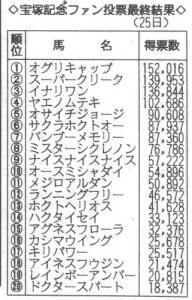 ◇宝塚記念ファン投票最終結果◇
(25日)
順位 馬名 得票数
① オグリキャップ 152,016
② スーパークリーク 139,953
③ イナリワン 136,844
④ ヤエノムテキ 102,686
⑤ オサイチジョージ 90,608
⑥ サクラホクトオー 87,931
⑦ バンブーメモリー 87,360
⑧ ミスターシクレノン 76,786
⑨ ナイスナイスナイス 57,222
⑩ オースミシャダイ 54,896
⑪ メジロアルダン 50,892
⑫ ランドヒリュウ
⑬ ホクトヘリオス 41,628
⑭ ハクタイセイ 33,123
⑮ アグネスフローラ 32,376
⑯ カシマウイング 25,678
⑰ キリパワー 25,517
⑱ ハイネスフウジン
⑲ レインボーアンバー 20,815
⑳ ドクタースパート 18,387